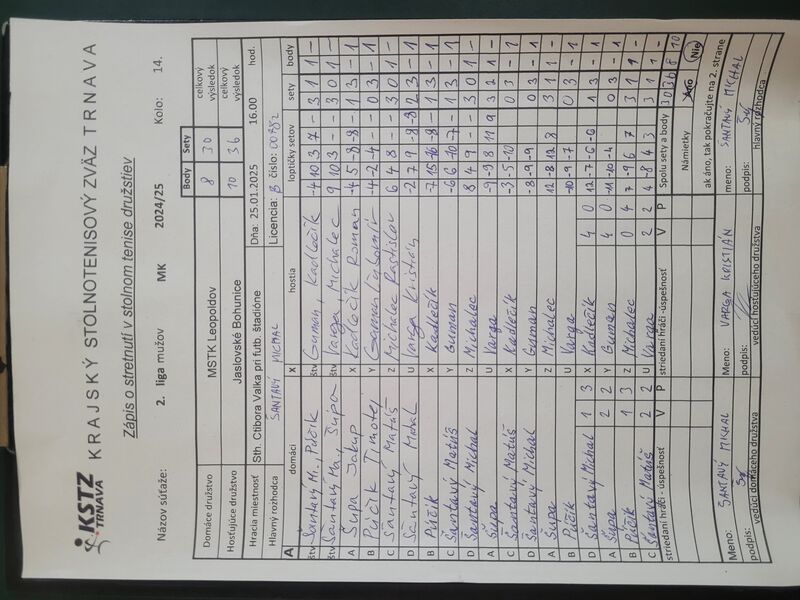 KSTZ
TRNAVA
KRAJSKÝ STOLNOTENISOVÝ ZVÄZ TRNAVA
Zápis o stretnutí v stolnom tenise družstiev
Názov súťaže: 2. liga mužov MK 2024/25 Kolo: 14.
Body Sety
Domáce družstvo MSTK Leopoldov celkový výsledok 8 30
Hosťujúce družstvo Jaslovské Bohunice celkový výsledok 10 36
Hracia miestnosť Sth. Ctibora Valka pri futb. štadióne Dňa: 25.01.2025 16.00 hod.
Hlavný rozhodca ŠANTAVÝ MICHAL Licencia: B číslo:
A domáci X hostia loptičky setov sety body
štv Šantavý M., Púčik štv Guman, Kadlečík -4 10 3 7 - 3 1 1 -
štv Šantavý Ma, Šupa štv Varga, Michalec 9 10 3 - - 3 0 1 -
A Šupa Jakub X Kadlečík Roman -4 5 -8 -8 - 1 3 - 1
B Púčik Timotej Y Guman Ľubomír -4 -2 -4 - - 0 3 - 1
C Šantavý Matúš Z Michalec Rastislav 6 4 8 - - 3 0 1 -
D Šantavý Michal U Varga Kristián -2 7 9 -8 -8 2 3 - 1
B Púčik X Kadlečík -7 15 -16 -8 - 1 3 - 1
C Šantavý Matúš Y Guman -6 6 -10 -7 - 1 3 - 1
D Šantavý Michal Z Michalec 8 4 9 - - 3 0 1 -
A Šupa U Varga -9 -9 8 11 9 3 2 1 -
C Šantavý Matúš X Kadlečík -3 -5 -10 - 0 3 - 1
D Šantavý Michal Y Guman -8 -9 -9 - 0 3 - 1
A Šupa Z Michalec 12 -8 12 8 3 1 1 -
B Púčik U Varga -10 -9 -7 - 0 3 - 1
D Šantavý Michal 1 3 X Kadlečík 4 0 12 -7 -6 -6 1 3 - 1
A Šupa 2 2 Y Guman 4 0 -11 -10 -4 0 3 - 1
B Púčik 1 3 Z Michalec 0 4 7 -9 6 7 3 1 1 -
C Šantavý Matúš 2 2 U Varga 2 2 4 -8 4 3 3 1 1 -
striedaní hráči - úspešnosť V P striedaní hráči -úspešnosť V P Spolu sety a body 30 36 8 10
Námietky Áno Nie
ak áno, tak pokračujte na 2. strane
Meno: ŠANTAVÝ MICHAL Meno: VARGA KRISTIÁN meno: ŠANTAVÝ MICHAL
podpis: podpis: podpis:
vedúci domáceho družstva vedúci hosťujúceho družstva hlavný rozhodca